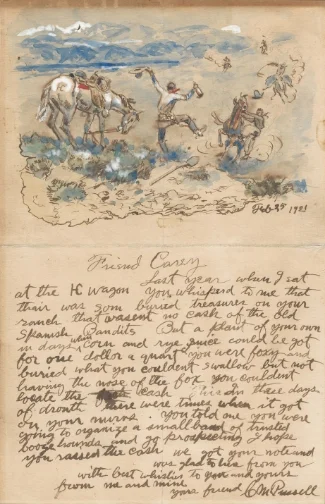 Feb 25 1921
Friend Carey
Last year when I eat
at the HC wagon you whisperd to me that
thair was som buried treasures on your
ranch that wasent no cash of the old
Spanish Bandits But a plant of your own
in days when Corn and rye juice could be got
for one dollor a quart you were foxy and
buried what you couldent swallow but not
having the nose of the fox you couldent
locate the cash in these days
of drouth there were times when it got
on your nirvs you told me you were
going to organize a small band of trusted
booze hounds and go prospecting I hope
you raised the cash we got your note and
was glad to hear from you
with best whishes to you and yours
from me and mine
yours friend CM Russell